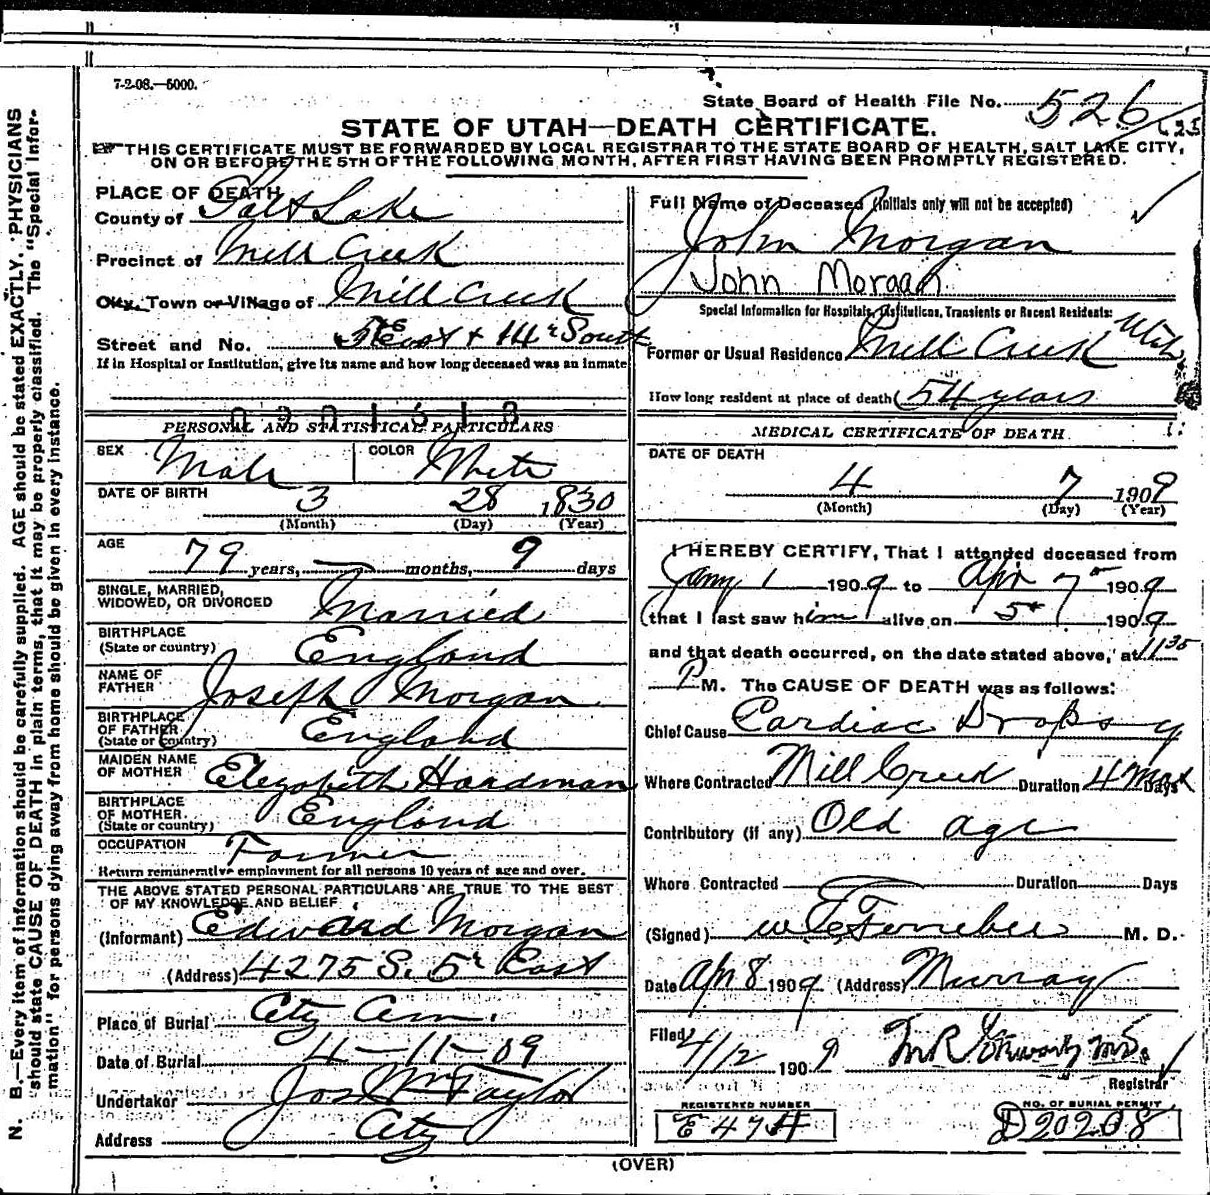 7-2-08.—5000.
State Board of Health File No. 526
STATE OF UTAH—DEATH CERTIFICATE.
THIS CERTIFICATE MUST BE FORWARDED BY LOCAL REGISTRAR TO THE STATE BOARD OF HEALTH, SALT LAKE CITY,
ON OR BEFORE THE 5TH OF THE FOLLOWING MONTH, AFTER FIRST HAVING BEEN PROMPTLY REGISTERED.
N. B.—Every item of information should be carefully supplied. AGE should be stated EXACTLY. PHYSICIANS
should state CAUSE OF DEATH in plain terms, that it may be properly classified. The "Special Infor-
mation" for persons dying away from home should be given in every instance.
PLACE OF DEATH
County of Salt Lake
Precinct of Mill Creek
City, Town or Village of Mill Creek
Street and No. 5 East + 14 South
If in Hospital or Institution, give its name and how long deceased was an inmate
PERSONAL AND STATISTICAL PARTICULARS
SEX Male COLOR White
DATE OF BIRTH 3 28 1830
(Month) (Day) (Year)
AGE 79 years, — months, 9 days
SINGLE, MARRIED,
WIDOWED, OR DIVORCED Married
BIRTHPLACE
(State or country) England
NAME OF
FATHER Joseph Morgan
BIRTHPLACE
OF FATHER
(State or country) England
MAIDEN NAME
OF MOTHER Elezabeth Hardman
BIRTHPLACE
OF MOTHER
(State or country) England
OCCUPATION Farmer
Return remunerative employment for all persons 10 years of age and over.
THE ABOVE STATED PERSONAL PARTICULARS ARE TRUE TO THE BEST
OF MY KNOWLEDGE AND BELIEF
(Informant) Edward Morgan
(Address) 4275 S. 5 East
Place of Burial City Cem.
Date of Burial 4-11-09
Undertaker Jos Wm Taylor
Address City
Full Name of Deceased (Initials only will not be accepted)
John Morgan
John Morgan
Special Information for Hospitals, Institutions, Transients or Recent Residents:
Former or Usual Residence Mill Creek Utah
How long resident at place of death 54 years
MEDICAL CERTIFICATE OF DEATH
DATE OF DEATH
4 7 1909
(Month) (Day) (Year)
I HEREBY CERTIFY, That I attended deceased from
Jany 1 1909 to Apr 7 1909
that I last saw him alive on 5 1909
and that death occurred, on the date stated above, at 11 35
P M. The CAUSE OF DEATH was as follows:
Chief Cause Cardiac Dropsy
Where Contracted Mill Creek Duration 4 Mos Days
Contributory (if any) Old age
Where Contracted Duration Days
(Signed) M. D.
Date Apr 8 1909 (Address) Murray
Filed 4/12 1909
Registrar
REGISTERED NUMBER NO. OF BURIAL PERMIT
E 474 D20208
(OVER)